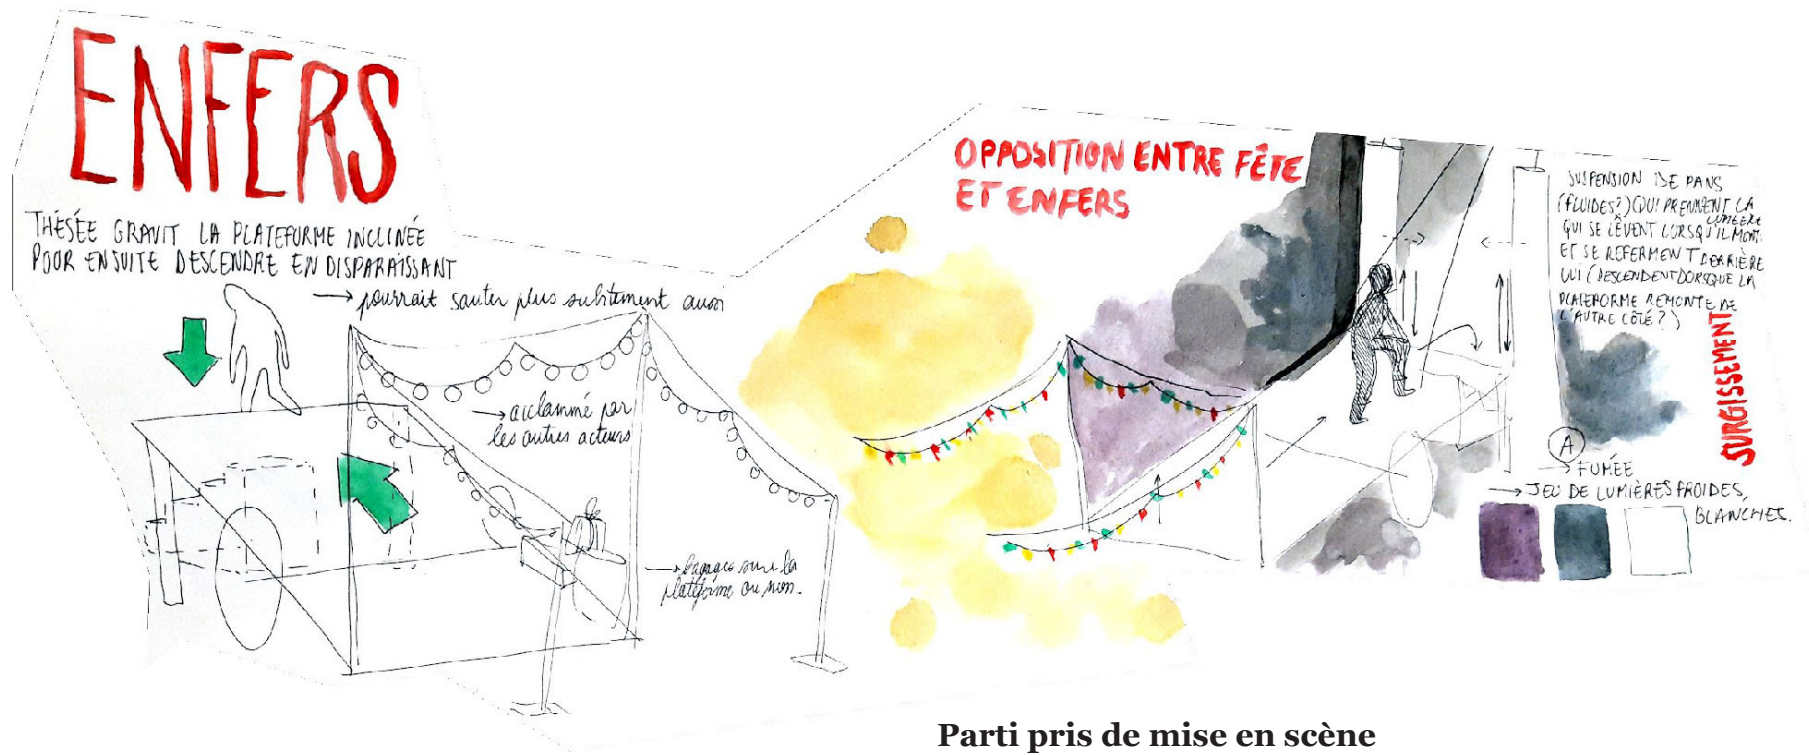 ENFERS
THÉSÉE GRAVIT LA PLATEFORME INCLINÉE
POUR ENSUITE DESCENDRE EN DISPARAISSANT
→ pourrait sauter plus subitement aussi
→ acclammé par
les autres acteurs
→ bagages sur la
plateforme ou non.
OPPOSITION ENTRE FÊTE
ET ENFERS
SUSPENSION DE PANS
(FLUIDES?) QUI PRENNENT LA
LUMIÈRE
QUI SE LÈVENT LORSQU'IL MONTE
ET SE REFERMENT DERRIÈRE
LUI (DESCENDENT LORSQUE LA
PLATEFORME REMONTE DE
L'AUTRE CÔTÉ?)
SURGISSEMENT
A
→ FUMÉE
→ JEU DE LUMIÈRES FROIDES,
BLANCHES.
Parti pris de mise en scène